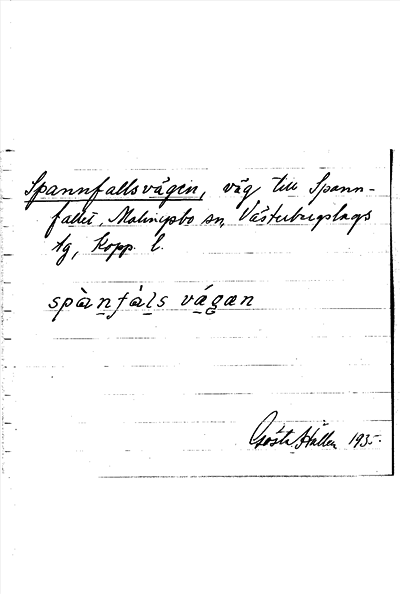 Spannfallsvägen, väg till Spann-
fallet, Malingsbo sn, Västerbergslags
tg, Kopp. l.
spànfàls vágæn
Gösta Hallén 1935.